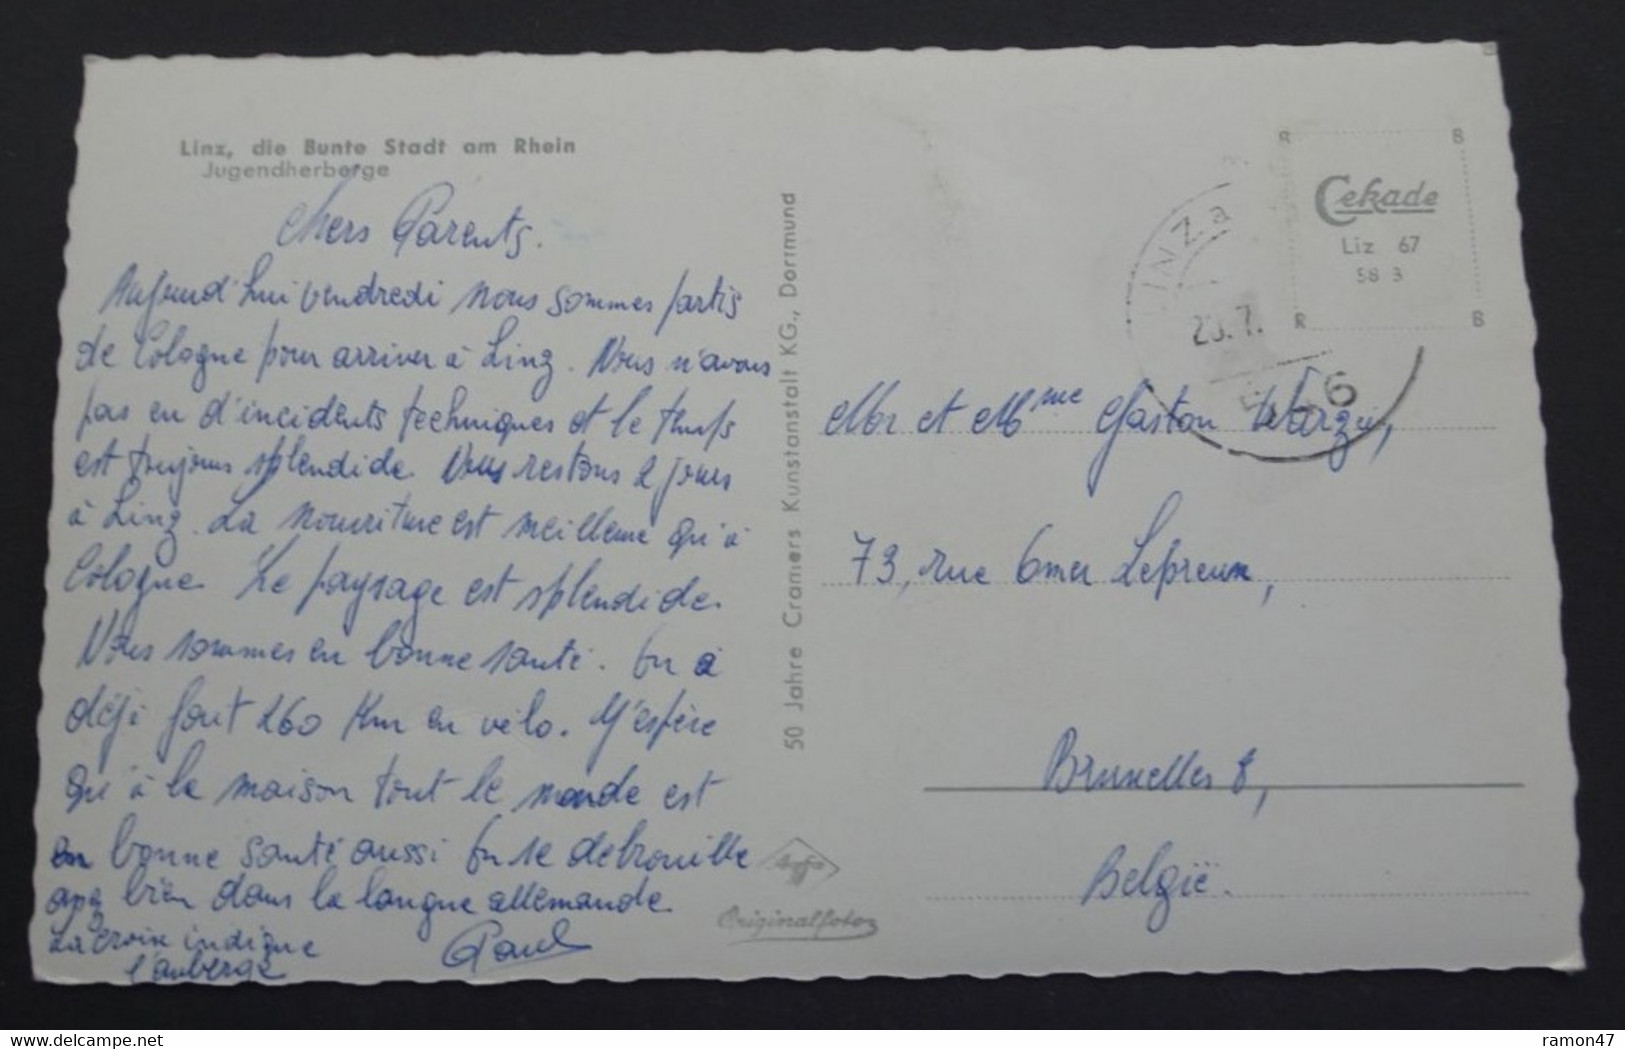 Linz, die Bunte Stadt am Rhein
Jugendherberge
Chers Parents.
Aujourd'hui vendredi nous sommes partis
de Cologne pour arriver à Linz. Nous n'avons
pas eu d'incidents techniques et le temps
est toujours splendide. Nous restons 2 jours
à Linz. La nourriture est meilleure qu'à
Cologne. Le paysage est splendide.
Nous sommes en bonne santé. On a
déjà fait 260 Km en vélo. J'espère
qu'à la maison tout le monde est
en bonne santé aussi On se débrouille
bien dans la langue allemande.
La croix indique
l'auberge
Paul
50 Jahre Cramers Kunstanstalt KG., Dortmund
Agfa
Originalfoto
LINZ a
7.
R B
Cekade
Liz 67
58 3
R B
Mr et Mme Gaston
73, rue Omer Lepreux,
Bruxelles 8,
België.
ramon47